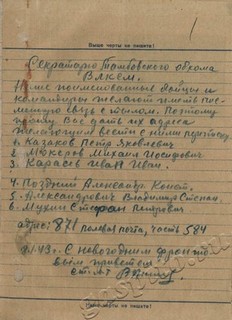 Выше черты не пишите!
Секретарю Тамбовского обкома
ВЛКСМ.
Ниже поименованные бойцы и
командиры желают иметь пись-
менную связь с тылом. Поэтому
прошу Вас дать их адреса
желающим вести с ними переписку
1. Казаков Петр Яковлевич
2. Михаил Иосифович
3. Карасев Иван Иван.
4. Поздний Александр Конст.
5. Александрович Владимир Степан
6. Мухин Степан Петрович
адрес: 871 полевая почта, часть 584
43г. С новогодним фронто
вым приветом
ст. л-т
Ниже черты не пишите!